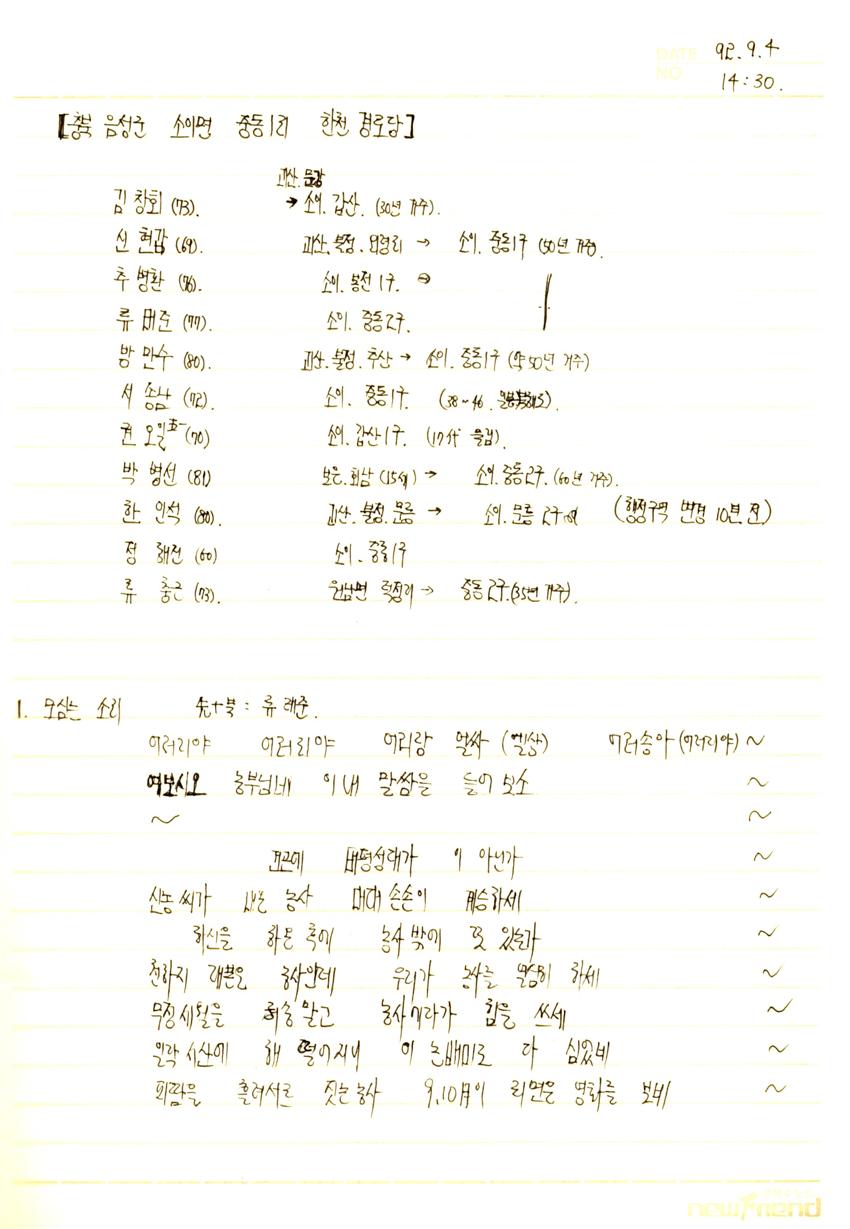 DATE 92.9.4
NO 14:30.
[충북 음성군 소이면 중동1리 한천 경로당]
괴산.문광
김창회 (73). → 소이. 갑산. (30년 거주).
신현갑 (69). 괴산.불정. → 소이. 중동1구 (50년 거주).
추병환 (76). 소이. 봉전 1구. →
류 준 (77). 소이. 중동2구.
방만수 (80). 괴산.불정.추산 → 소이. 중동1구 (약50년 거주)
서송남 (72). 소이. 중동1구. (38~46.
권오일 (70) 소이. 갑산1구. (17代
박병선 (81) 보은.회남 (15세) → 소이.중동2구. (60년 거주).
한인석 (80). 괴산.불정.문릉 → 소이.문릉 2구 (행정구역 변경 10년 전)
정해진 (60) 소이.중동1구
류충근 (73). 원남면 → 중동2구.(35년 거주).
1. 모심는 소리 先+북 : 류 준.
여러리야 여러리야 여리랑 얼싸 (엘상) 여러송아 (여러리야) ~
여보시오 농부님네 이내 말쌈을 들어 보소 ~
~ ~
태평성대가 이 아닌가 ~
신농씨가 내는 농사 대대 손손이 계승하세 ~
하는 농사 밖에 또 있는가 ~
천하지 대본은 농사안데 우리가 농사를 열심히 하세 ~
무정세월을 허송 말고 농사 힘을 쓰세 ~
일락 서산에 해 떨어지니 이 논배미도 다 심었네 ~
피땀을 흘려서로 짓는 농사 9,10月이 되면은 영화를 보네 ~
newfriend